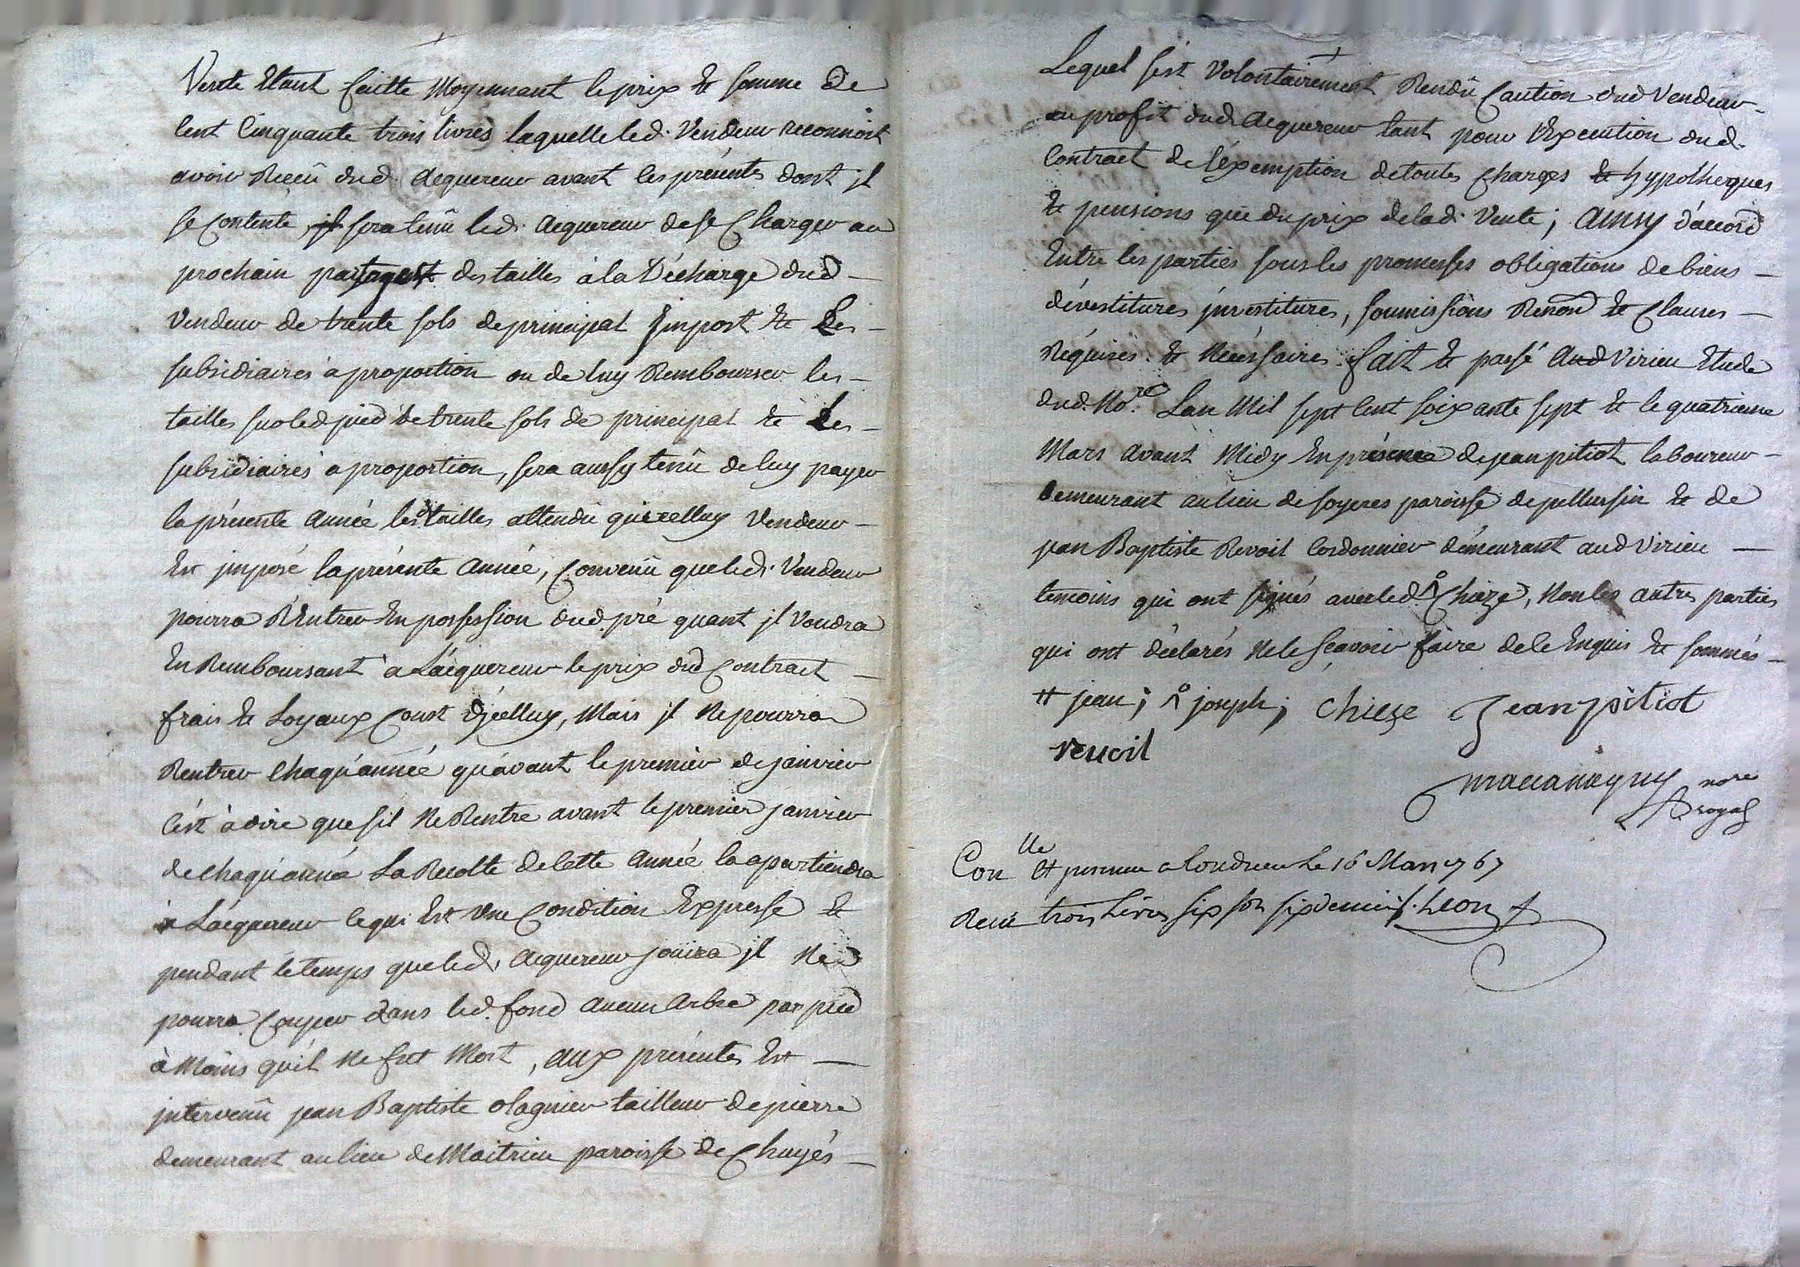 Vente Etant faitte Moyennant le prix & somme de
Cent Cinquante trois livres laquelle led. Vendeur reconnoit
avoir Reçeû dud. Acquereur avant les présentes dont jl
se Contente, jl sera tenû led. Acquereur de se Charger au
prochain des tailles à la Décharge dud
Vendeur de trente sols de principal jmpost & Les
subsidiaires à proportion ou de luy Rembourser les
tailles sur led pied de trente sols de principal & Les
subsidiaires à proportion, sera aussy tenû de luy payer
la présente Année les tailles attendû qu'icelluy Vendeur
Est jmposé la présente Année, Convenû que led. Vendeur
pourra Rentrer En possession dud. pré quant jl Voudra
En Remboursant à L'acquereur le prix dud Contract
frais & Loyaux Coust d'jcelluy, Mais jl Ne pourra
Rentrer Chaqu'année qu'avant le premier de janvier
C'est à dire que s'il Ne Rentre avant le premier janvier
de Chaqu'année La Recolte de Cette Année la apartiendra
à L'acquereur ce qui Est Une Condition Expresse &
pendant le temps que led. Acquereur jouira jl Ne
pourra Couper dans led. fond aucun Arbre par pied
à Moins qu'il Ne fut Mort, aux présentes Est
jntervenû jean Baptiste olagnier tailleur de pierre
demeurant au lieu de Maitrieu paroisse de Chuyés
Lequel s'est Volontairement Rendû Caution dud Vendeur
au profit dud. Acquereur tant pour l'Execution dud.
Contract de l'éxemption de toutes Charges & hypotheques
& pensions que du prix de lad. Vente; Ainsy d'accord
Entre les parties sous les promesses obligations de biens
dévestitures jnvestitures, soumissions Renon & Clauses
Réquises & Nécessaires fait & passé Aud Virieu Etude
dud. No.re Lan Mil sept Cent soixante sept & le quatrieme
Mars avant Midy En présence de jean pitiot laboureur
demeurant au lieu de soyeres paroisse de pellussin & de
jean Baptiste Revoil Cordonnier démeurant aud Virieu
temoins qui ont signés avec led. Chieze, Non les autres parties
qui ont déclarés Ne le sçavoir faire de ce Enquis & sommés
# jean; joseph; chieze Jean pitiot
revoil
no.re
royal
Con lle & a Condrieu Le 16 Mars 1767
Reçu trois Livres six sols six deniers.